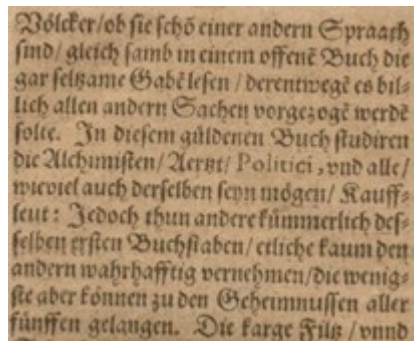 Völcker/ob sie schõ einer andern Spraach
sind/ gleich samb in einem offenẽ Buch die
gar seltzame Gabẽ lesen / derentwegẽ es bil-
lich allen andern Sachen vorgezogẽ werdẽ
solte. In diesem güldenen Buch studiren
die Alchimisten/ Aertzt/ Politici, vnd alle/
wieviel auch derselben seyn mögen/ Kauff-
leut: Jedoch thun andere kümmerlich des-
selben ersten Buchstaben/ etliche kaum den
andern wahrhafftig vernehmen/die wenig-
ste aber können zu den Geheimnussen aller
fünffen gelangen. Die karge Filtz / vnnd